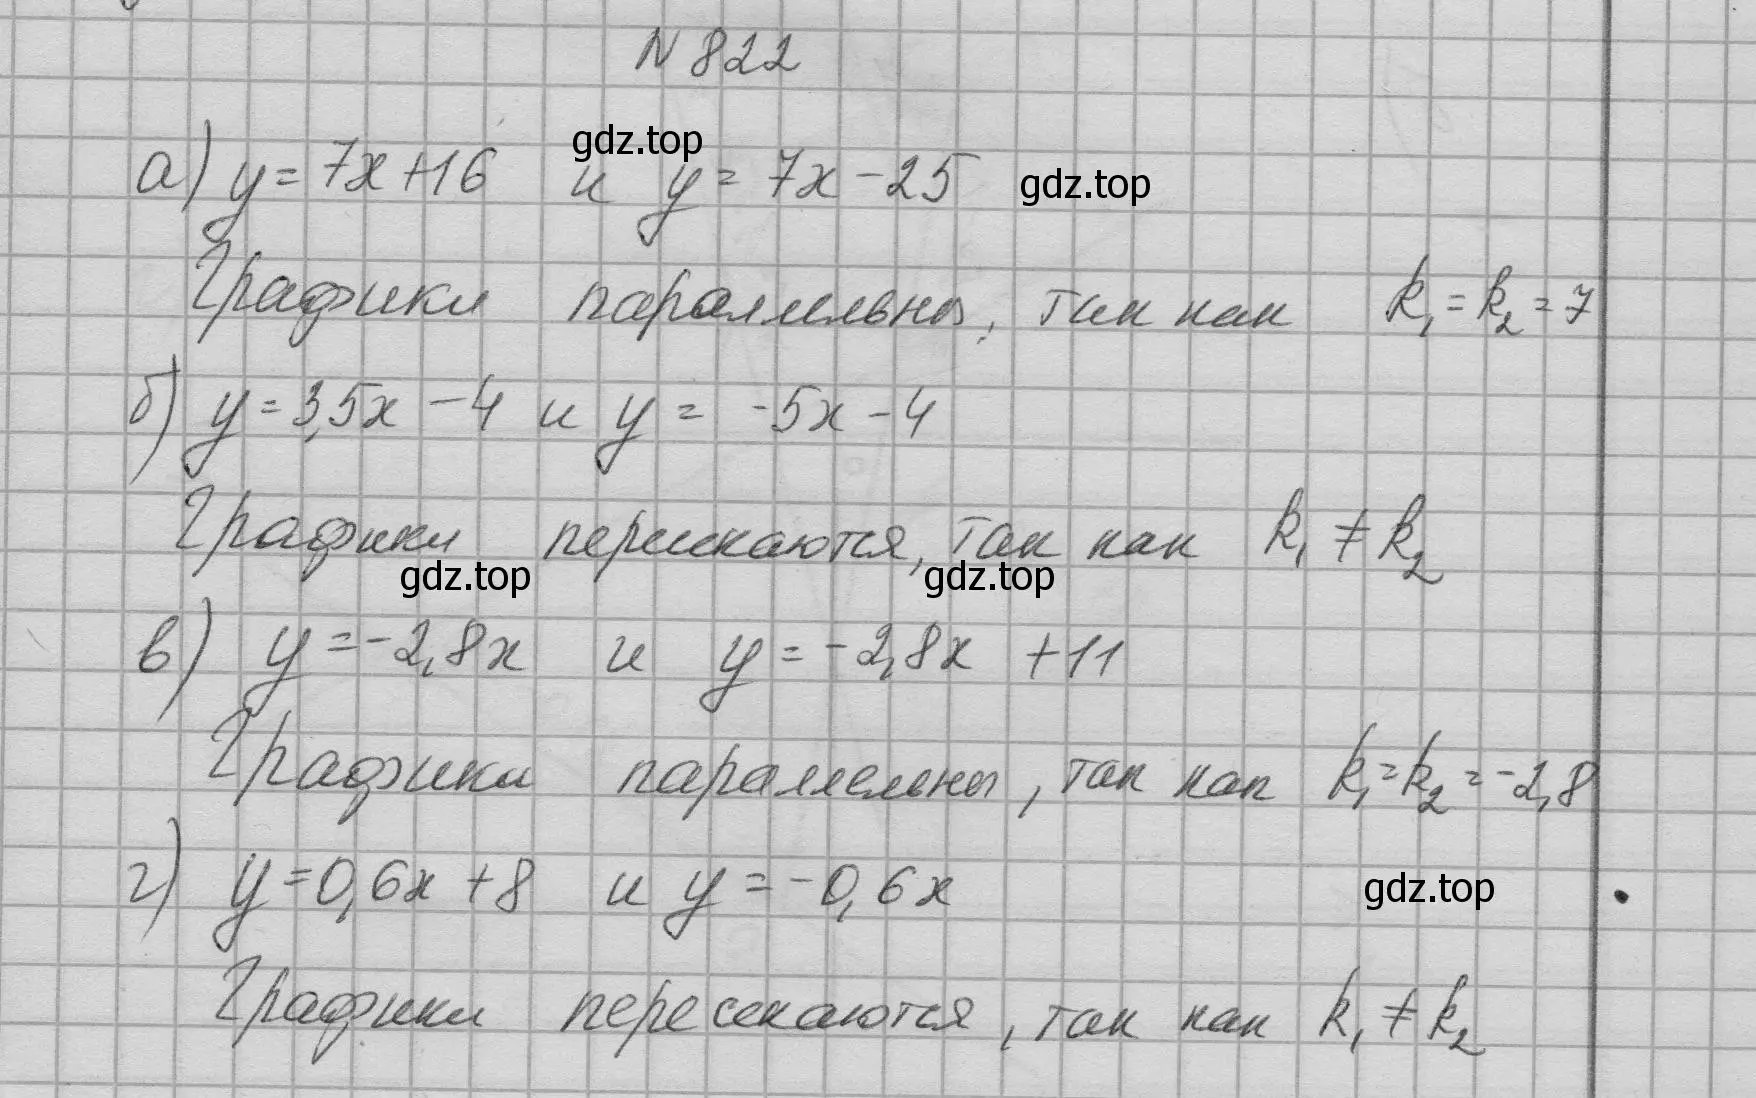 N 822
gdz.top
а) y = 7x + 16 и y = 7x - 25 gdz.top
Графики параллельны, так как k₁ = k₂ = 7
б) y = 3,5x - 4 и y = -5x - 4
Графики пересекаются, так как k₁ ≠ k₂
gdz.top gdz.top
в) y = -2,8x и y = -2,8x + 11
Графики параллельны, так как k₁ = k₂ = -2,8
г) y = 0,6x + 8 и y = -0,6x gdz.top
Графики пересекаются, так как k₁ ≠ k₂